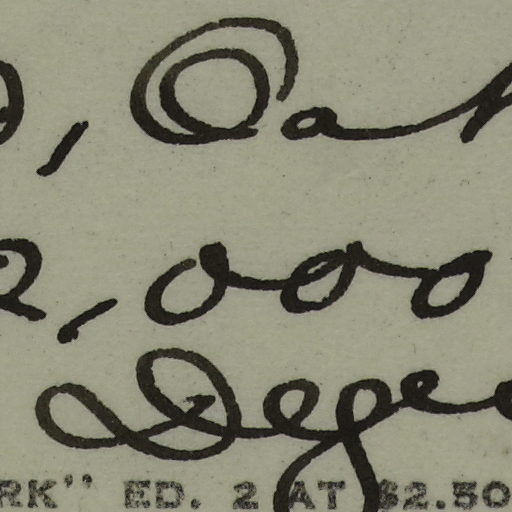 , Oa
2,000
Dege
RK" ED. 2 AT $2.50